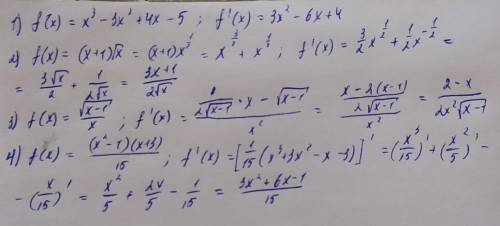 1) f(x) = x³ - 3x² + 4x - 5 ; f'(x) = 3x² - 6x + 4
2) f(x) = (x+1)√x = (x+1)x^{1/2} = x^{3/2} + x^{1/2} ; f'(x) = \frac{3}{2}x^{1/2} + \frac{1}{2}x^{-1/2} =
= \frac{3√x}{2} + \frac{1}{2√x} = \frac{3x+1}{2√x}
3) f(x) = \frac{√(x-1)}{x} ; f'(x) = \frac{\frac{1}{2√(x-1)} · x - √(x-1)}{x²} = \frac{\frac{x-2(x-1)}{2√(x-1)}}{x²} = \frac{2-x}{2x²√(x-1)}
4) f(x) = \frac{(x²-1)(x+3)}{15} ; f'(x) = [\frac{1}{15}(x³+3x²-x-3)]' = (\frac{x³}{15})' + (\frac{x²}{5})' -
- (\frac{x}{15})' = \frac{x²}{5} + \frac{2x}{5} - \frac{1}{15} = \frac{3x²+6x-1}{15}